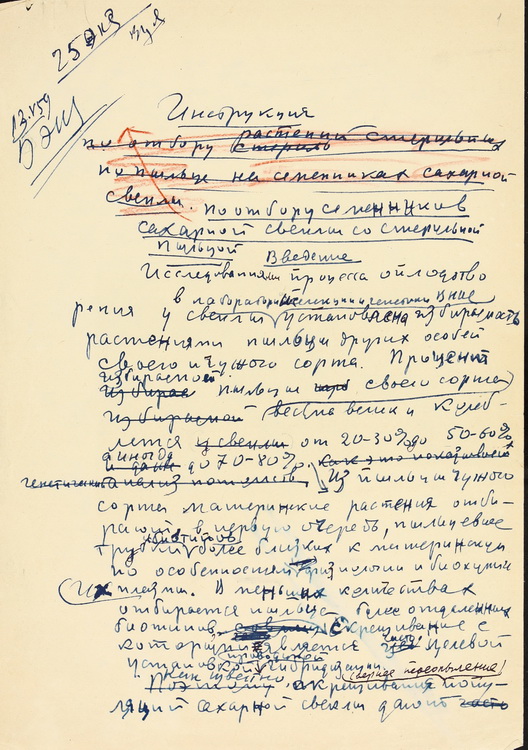 25 экз
13.V59
5 экз
Инструкция
растений стерильных
по отбору стериль
по пыльце на семенниках сахарной
свеклы. по отбору семенников
сахарной свеклы со стерильной
пыльцой Введение
Исследованиями процесса оплодотво
в лаборатории селекции и генетики
рения у свеклы установлена избираемость
растениями пыльцы других особей
своего и чужого сорта. Процент
избираемой
избирае пыльцы своего сорта
избираемой весьма велик и колеб-
лется у свеклы от 20-30% до 50-60%
а иногда
и даже до 70-80% как это показывает
генетический анализ потомств Из пыльцы чужого
сорта материнские растения отби-
рают в первую очередь, пыльцевые
биотипов
трубки более близких к материнскому
по особенностям физиологии и биохимии
их плазмы. В меньших количествах
отбирается пыльца более отдаленных
биотипов, скрещивание с
которыми является целевой
установкой гибридизации.
как известно (переопыление)
Поэтому скрещивания попу-
ляций сахарной свеклы дало часть